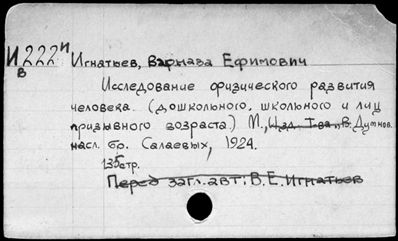 И222и Игнатьев, Варнава Ефимович
в
Исследование физического развития
человека (дошкольного, школьного и лиц
призывного возраста) М., Изд. Т-ва "В. Думнов.
насл. бр. Салаевых, 1924.
135стр.
Перед загл. авт: В.Е.Игнатьев